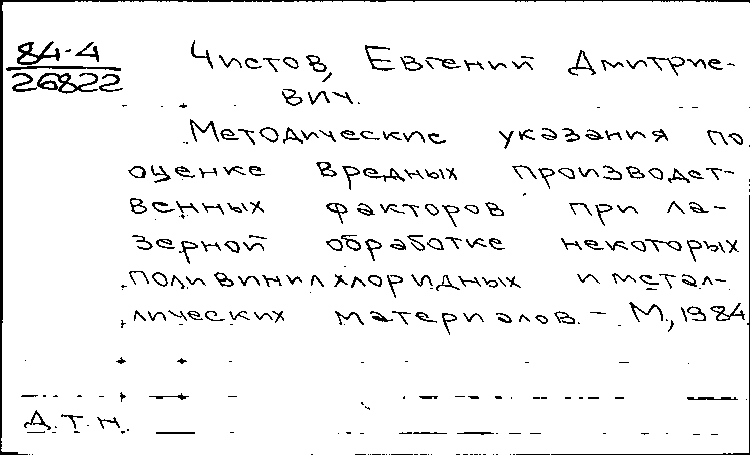 84-4
26822
Чистов, Евгений Дмитрие-
вич.
Методические указания по
оценке вредных производст-
венных факторов при ла-
зерной обработке некоторых
поливинилхлоридных и метал-
лических материалов. - М, 1984
Д.Т.Н.